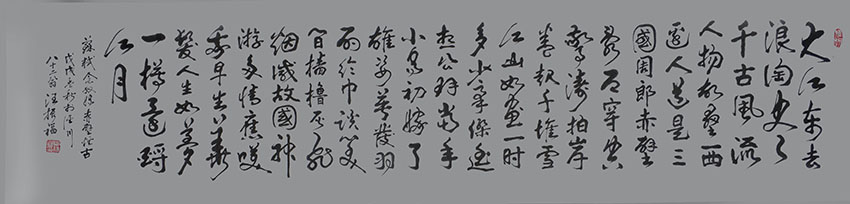 大江东去
浪淘尽
千古风流
人物故垒西
边人道是三
國周郎赤壁
乱石穿空
惊涛拍岸
卷起千堆雪
江山如画一时
多少豪傑遥
想公瑾当年
小乔初嫁了
雄姿英发羽
扇纶巾谈笑
间樯橹灰飛
烟滅故國神
游多情應笑
我早生华
髮人生如夢
一樽還酹
江月
蘇軾念奴娇赤壁怀古
戊戌
八十三翁汪振福